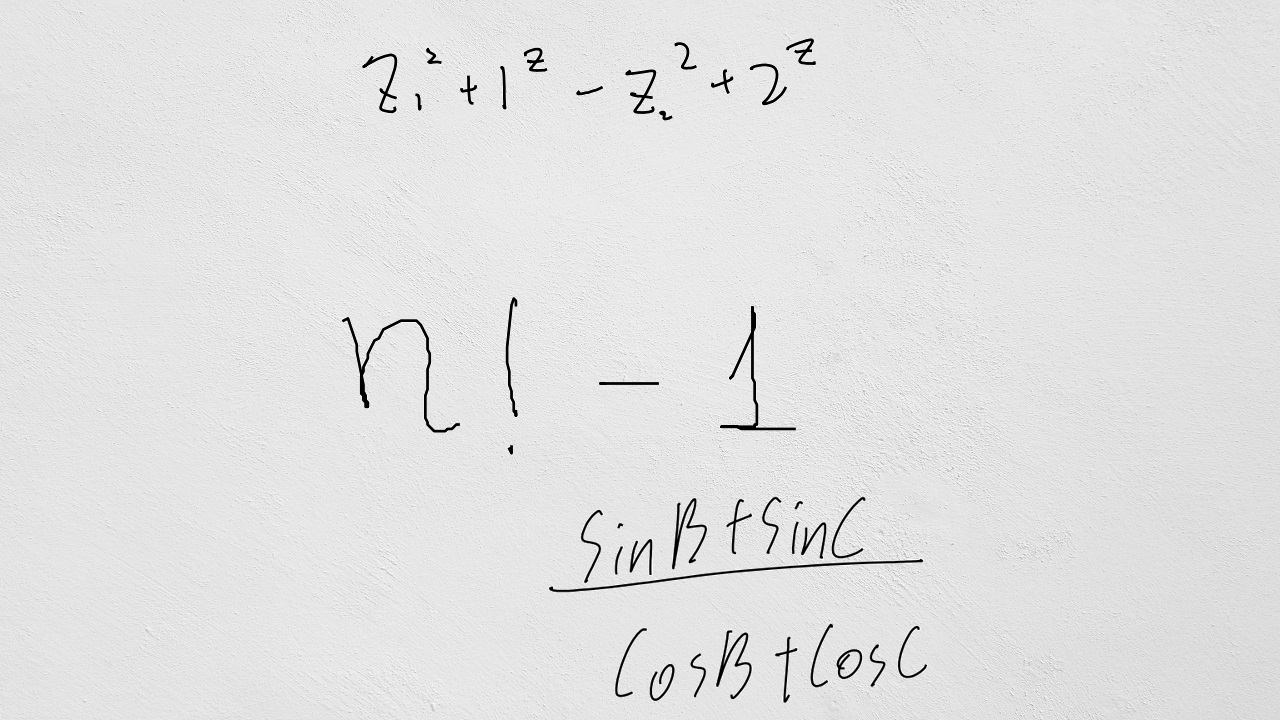 z₁² + 1^z - z₂² + 2^z
n! - 1
sin B + sin C
cos B + cos C